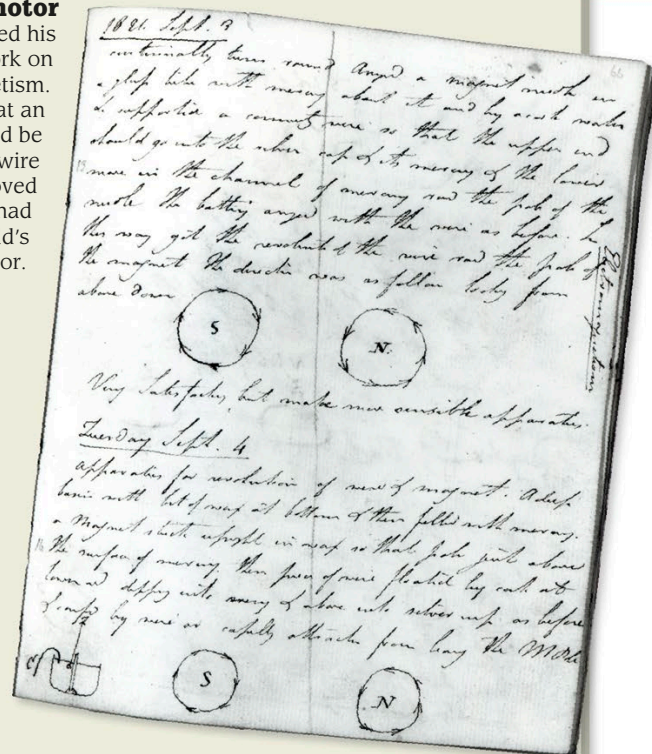 motor
ed his
rk on
etism.
at an
d be
wire
oved
had
d's
or.
66
1821. Sept. 3
continually turns round Arged a magnet needle in
a glass tube with mercury about it and by a cork water
& supported a connect wire so that the upper end
should go into the silver cup & its mercury & the lower
15 move in the channel of mercury round the pole of the
needle The battery arranged with the wire as before. In
this way got the revolution of the wire round the pole of
the magnet The direction was as follow looking from
above down
Electromagnetism
S
N
Very Satisfactory, but make more sensible apparatus.
Tuesday Sept. 4
Apparatus for revolution of wire & magnet. A deep
basin with bit of wax at bottom & then filled with mercury.
a Magnet stuck upright in wax so that pole just above
16 the surface of mercury then piece of wire floated by cork at
lower end dipping into mercy & above into silver cup as before
& wire or
S
N